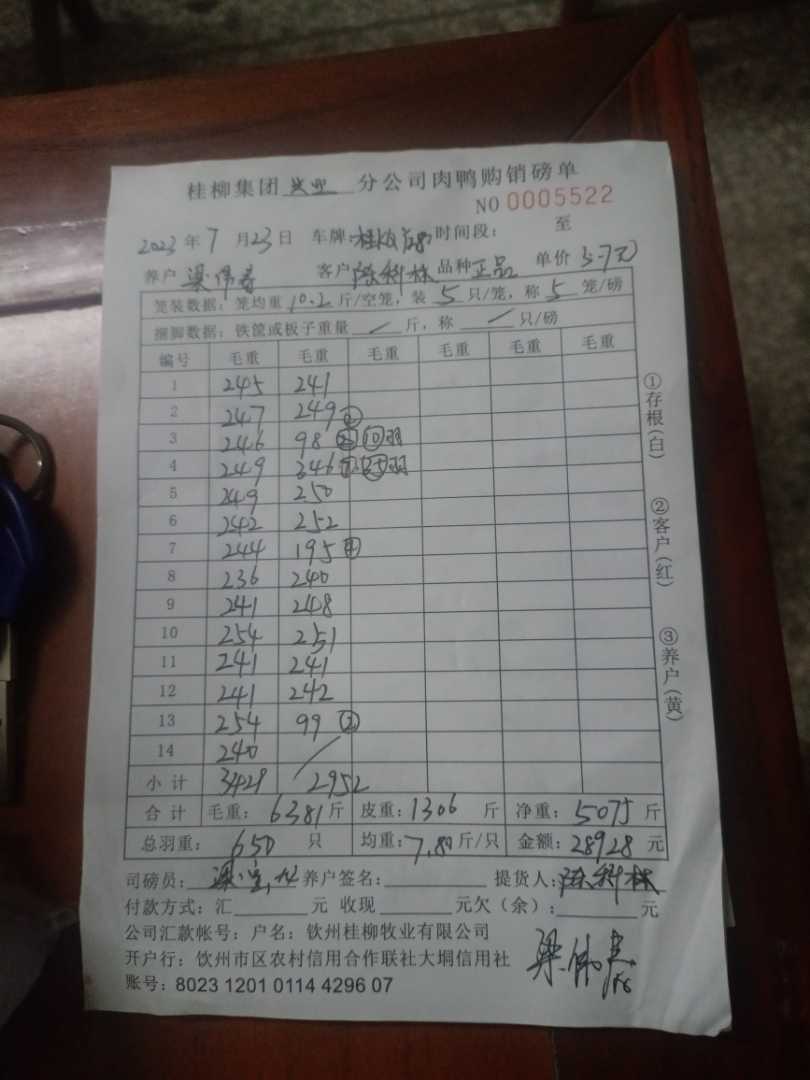 桂柳集团 分公司肉鸭购销磅单
NO 0005522
2023年7月23日 车牌: 时间段: 至
养户 梁伟春 客户 陈科林 品种 正品 单价 5.7元
笼装数据: 笼均重 10.2 斤/空笼, 装 5 只/笼, 称 5 笼/磅
捆脚数据: 铁筐或板子重量 / 斤, 称 / 只/磅
编号 毛重 毛重 毛重 毛重 毛重 毛重
1 245 241
2 247 249
3 246 98 ② ⑩羽
4 249 346 ⑦ 35羽
5 249 250
6 242 252
7 244 195 ④
8 236 240
9 241 248
10 254 251
11 241 241
12 241 242
13 254 99 ②
14 240 /
小计 3429 2952
合计 毛重: 6381斤 皮重: 1306 斤 净重: 5075斤
总羽重: 650 只 均重: 7.80斤/只 金额: 28928元
司磅员: 养户签名: 提货人: 陈科林
付款方式: 汇 元 收现 元欠(余): 元
公司汇款帐号: 户名: 钦州桂柳牧业有限公司
开户行: 钦州市区农村信用合作联社大垌信用社
账号: 8023 1201 0114 4296 07
①存根(白)
②客户(红)
③养户(黄)